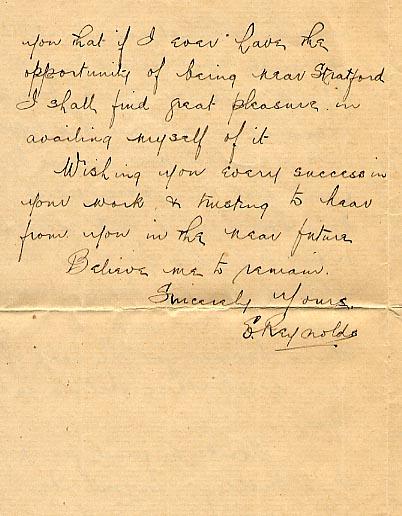 you that if I ever have the
opportunity of being near Stratford
I shall find great pleasure in
availing myself of it
Wishing you every success in
your work & trusting to hear
from you in the near future
Believe me to remain.
Sincerely Yours.
E. Reynolds